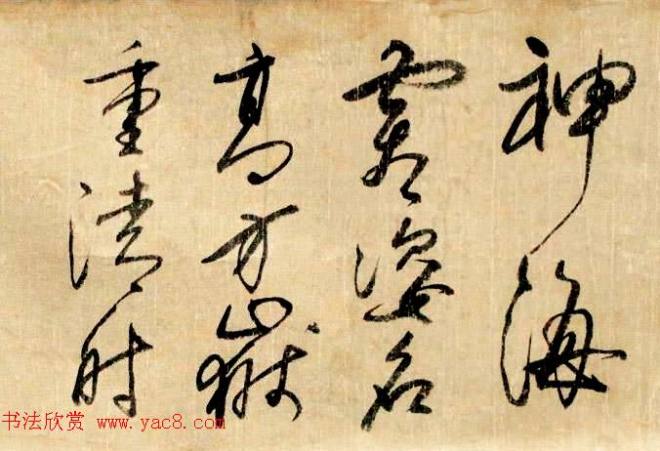 神海
姿名
高方嶽
重清时
书法欣赏 www.yac8.com